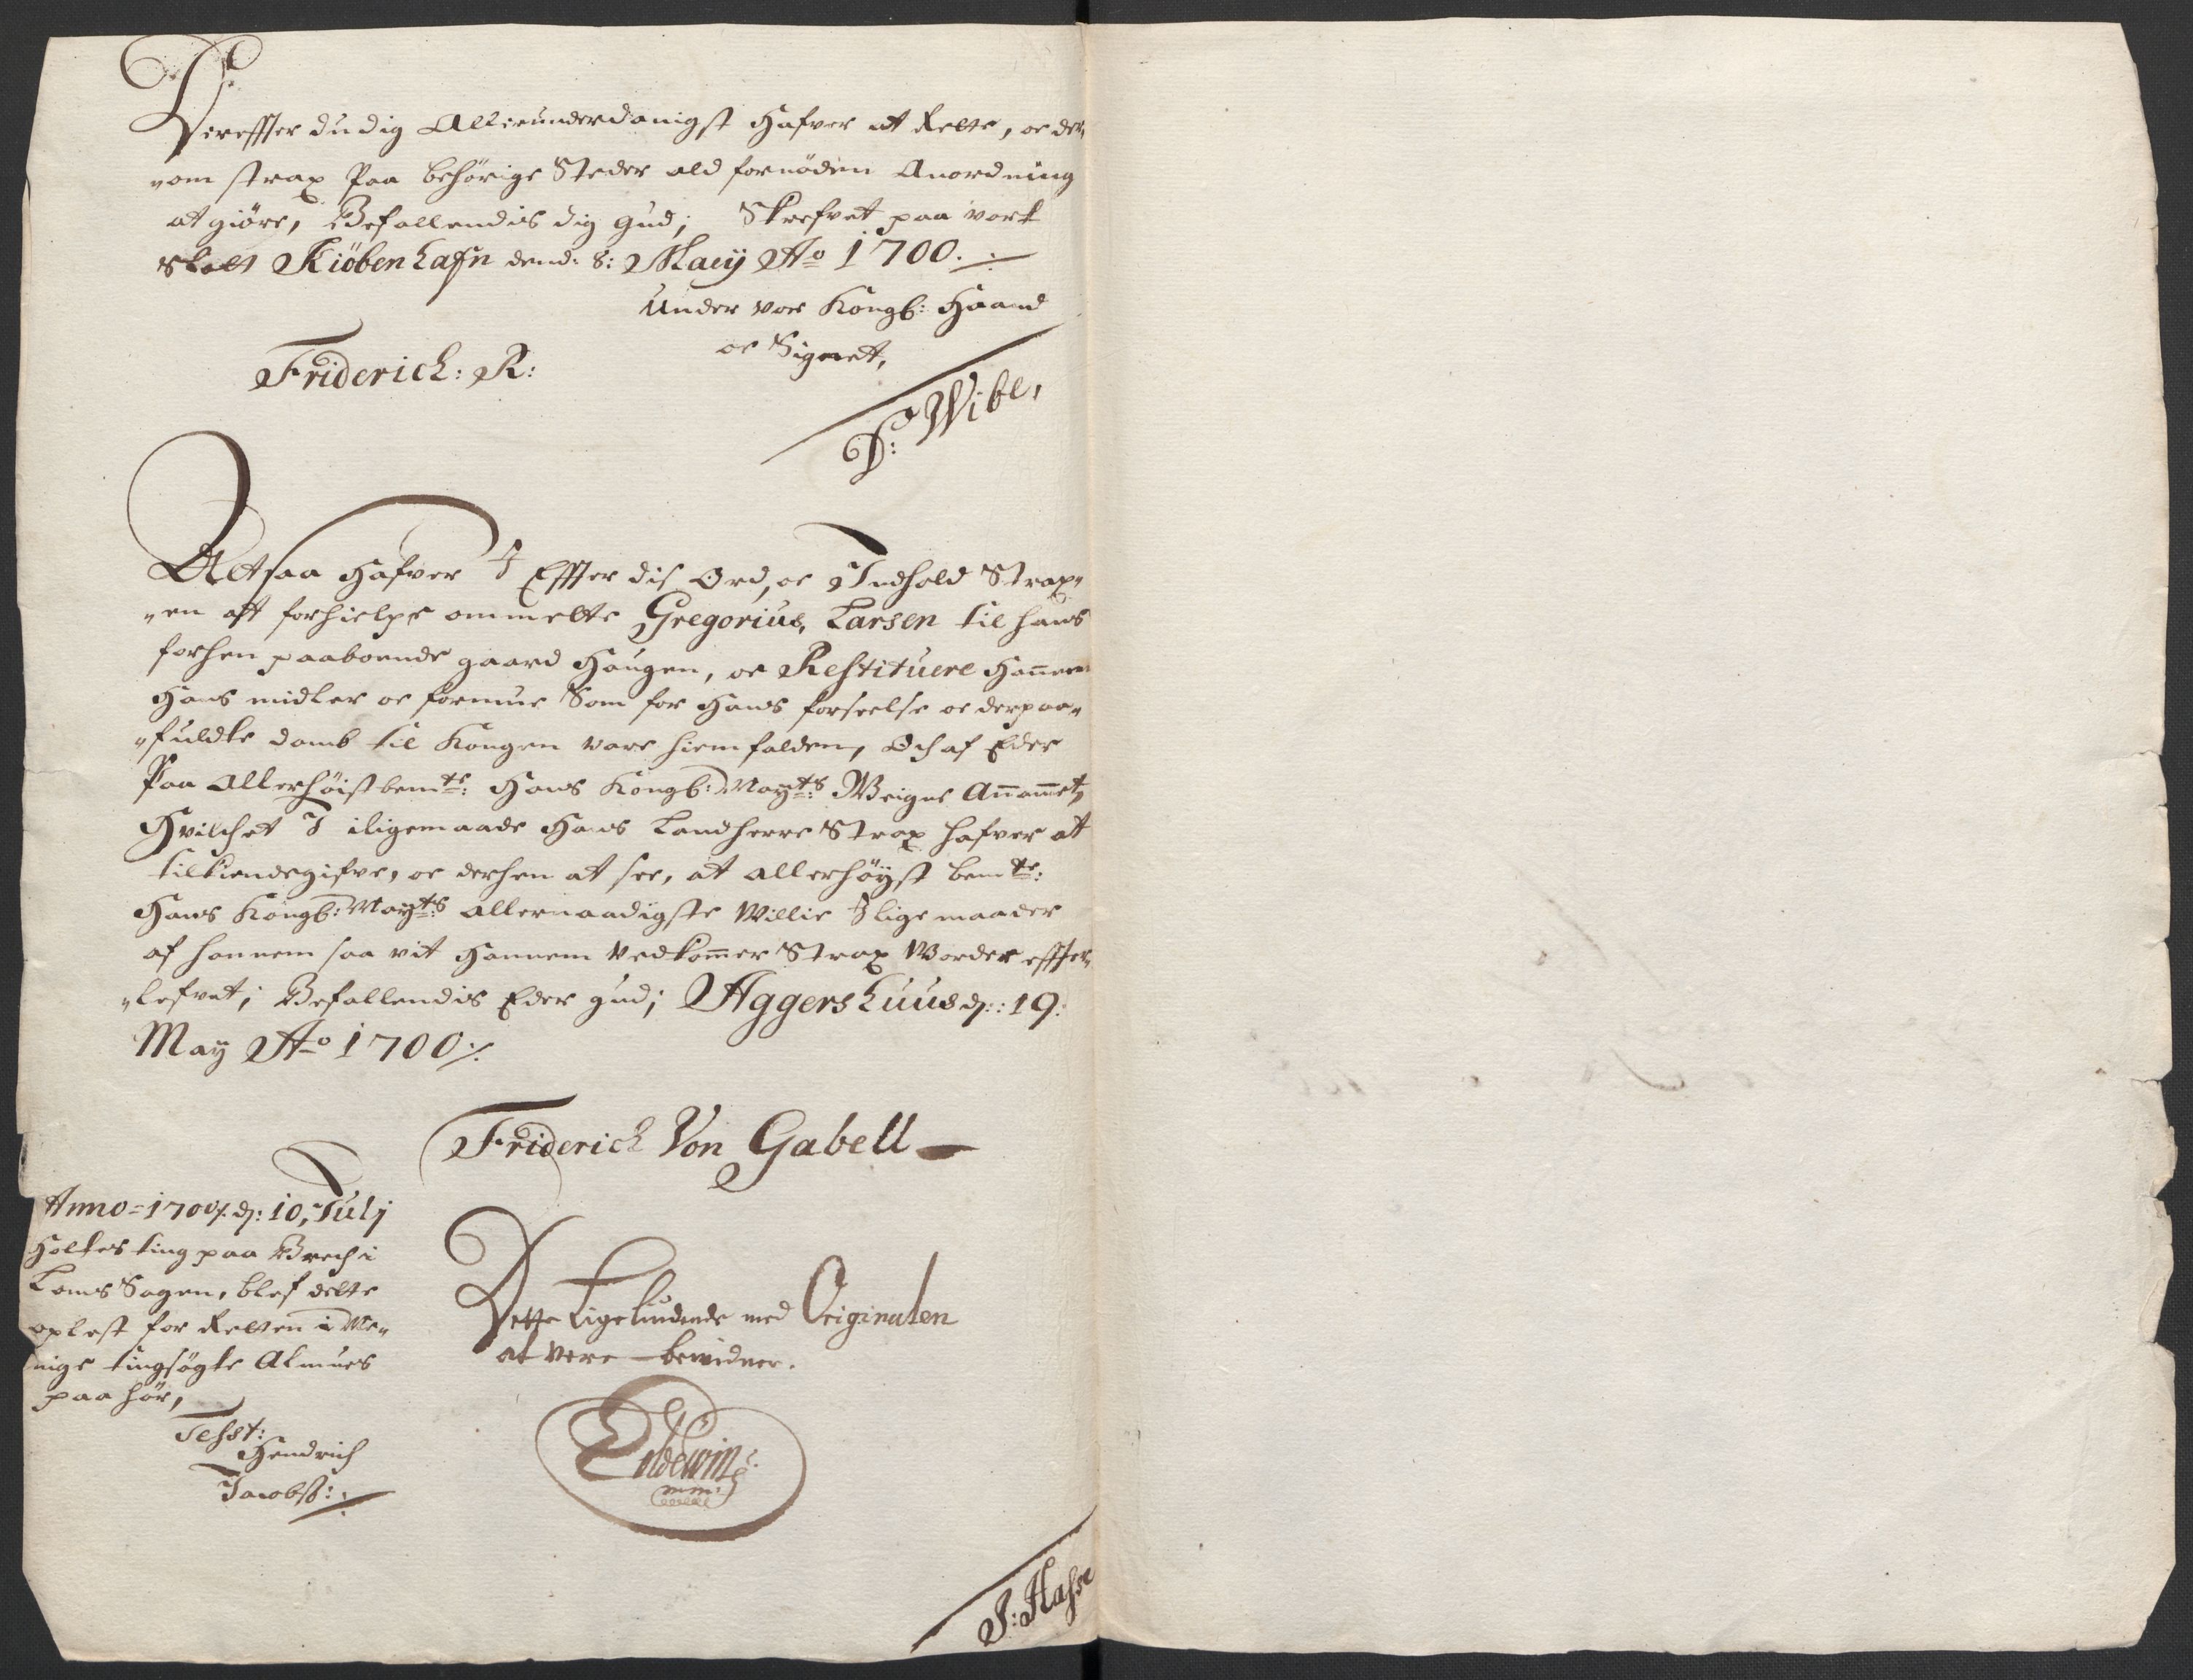 Dereffter du dig Allerunderdanigst hafver at Rette, oc der„
„om strax Paa behørige Steder ald fornöden Anordning
at giöre, Befallendis dig gud; Skrefvet paa vort
Slott Kiöbenhafn dend: 8: Maij Ao 1700.
Under vor Kongl: Haand
oc Signet,
Friderich: R:
D: Wibe,
Altsaa hafver I Effter dis Ord, oc Indhold Strax„
„en att forhielpe ommelte Gregorius Larsen til hans
forhen paaboende gaard Haugen, oc Restituere Hannem
Hans midler oc formue Som for Hans forseelse oc derpaa„
„fuldte domb til Kongen vare hiemfalden, Och af Eder
Paa Allerhöistbemte: Hans Kongl: Mayts: Weigne Annammet,
Hvilchet I iligemaade Hans Landherre Strax hafver at
tilkiendegifve, oc derhen at see, at allerhöyst bemte:
Hans Kongl: Mayts: allernaadigste Willie I lige maader
af hannem saa vit Hannem Vedkommer Strax Worder effter„
„lefvet; Befallendis Eder gud; Aggershuus d: 19:
May Ao 1700
Friderich Von Gabell
Anno 1700 d: 10, Julj
Holtes ting paa Brech i
Loms Sogen, blef dette
oplest for Retten i Me„
nige tingsögte Almues
paahör,
Testt:
Hendrich
Jacobss:
Dette Ligeliudende med Originalen
at vere bewidner.
Eoldewin
mm
J: Hasse